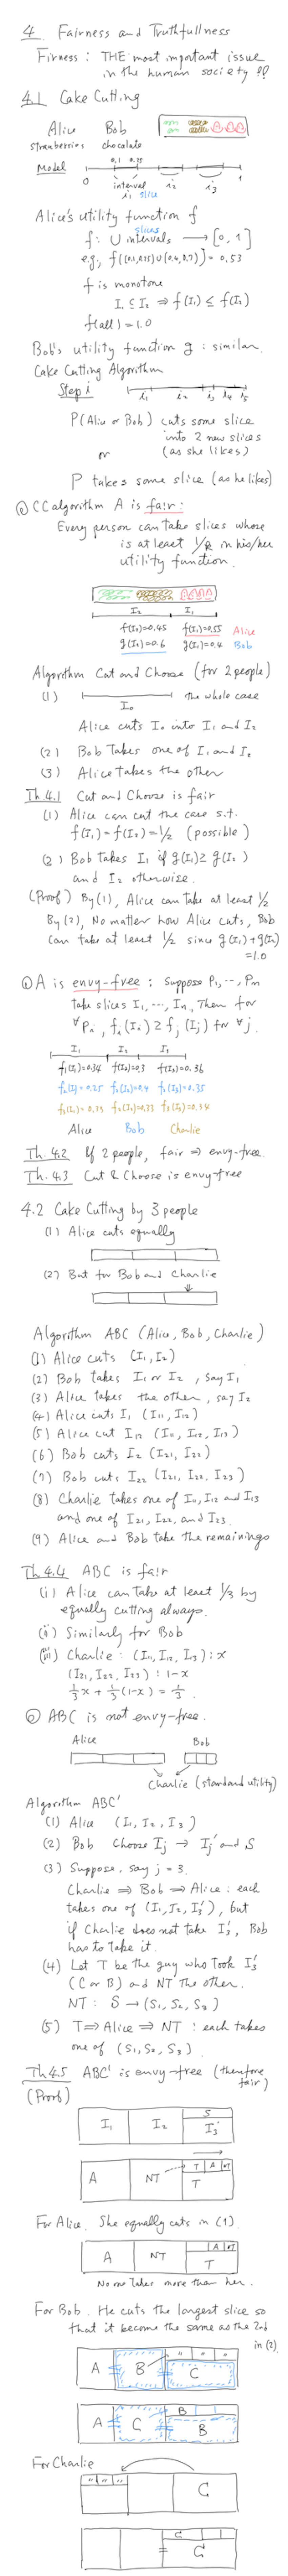 4 Fairness and Truthfullness
Firness : THE most important issue
in the human society !!
4.1 Cake Cutting
Alice Bob
strawberries chocolate
Model
0.1 0.25
0 interval i2 i3 1
i1 slice
Alice's utility function f
slices
f : ∪ intervals → [0, 1]
e.g., f([0.1, 0.25]∪(0.4, 0.7)) = 0.53
f is monotone
I1 ⊆ I2 ⇒ f(I1) ≤ f(I2)
f(all) = 1.0
Bob's utility function g : similar.
Cake Cutting Algorithm
Step i
i1 i2 i3 i4 i5
P(Alice or Bob) cuts some slice
into 2 new slices
or (as she likes)
P takes some slice (as he likes)
◎ CC algorithm A is fair:
Every person can take slices whose
is at least 1/k in his/her
utility function.
I2 I1
f(I2)=0.45 f(I1)=0.55 Alice
g(I2)=0.6 g(I1)=0.4 Bob
Algorithm Cut and Choose (for 2 people)
(1) the whole case
I0
Alice cuts I0 into I1 and I2
(2) Bob Takes one of I1 and I2
(3) Alice takes the other
Th 4.1 Cut and Choose is fair
(1) Alice can cut the case s.t.
f(I1) = f(I2) = 1/2 (possible)
(2) Bob takes I1 if g(I1) ≥ g(I2)
and I2 otherwise.
(Proof) By (1), Alice can take at least 1/2
By (2), No matter how Alice cuts, Bob
can take at least 1/2 since g(I1)+g(I2)
=1.0
◎ A is envy-free : Suppose P1, ..., Pn
take slices I1, ..., In, Then for
∀Pi, fi(Ii) ≥ fj(Ij) for ∀j.
I1 I2 I3
f1(I1)=0.34 f(I2)=0.3 f(I3)=0.36
f2(I1)=0.25 f2(I2)=0.4 f2(I3)=0.35
Alice Bob Charlie
Th. 4.2 If 2 people, fair ⇒ envy-free.
Th. 4.3 Cut & Choose is envy-free
4.2 Cake Cutting by 3 people
(1) Alice cuts equally
(2) But for Bob and Charlie
Algorithm ABC (Alice, Bob, Charlie)
(1) Alice cuts (I1, I2)
(2) Bob takes I1 or I2, say I1
(3) Alice takes the other, say I2
(4) Alice cuts I1 (I11, I12)
(5) Alice cut I12 (I11, I12, I13)
(6) Bob cuts I2 (I21, I22)
(7) Bob cuts I22 (I21, I22, I23)
(8) Charlie takes one of I11, I12 and I13
and one of I21, I22, and I23.
(9) Alice and Bob take the remainings
Th 4.4 ABC is fair
(i) Alice can take at least 1/3 by
equally cutting always.
(ii) Similarly for Bob
(iii) Charlie : (I11, I12, I13) : x
(I21, I22, I23) : 1-x
1/3 x + 1/3 (1-x) = 1/3.
◎ ABC is not envy-free.
Alice Bob
Charlie (standard utility)
Algorithm ABC'
(1) Alice (I1, I2, I3)
(2) Bob Choose Ij → Ij' and S
(3) Suppose, say j = 3.
Charlie ⇒ Bob ⇒ Alice : each
takes one of (I1, I2, I3'), but
if Charlie does not take I3', Bob
has to take it.
(4) Let T be the guy who Took I3'
(C or B) and NT the other.
NT : S → (S1, S2, S3)
(5) T ⇒ Alice ⇒ NT : each takes
one of (S1, S2, S3).
Th 4.5 ABC' is envy-free (therefore
fair)
(Proof)
S
I1 I2 I3'
T A NT
A NT T
For Alice, She equally cuts in (1)
A NT
A NT T
No one takes more than her.
For Bob. He cuts the largest slice so
that it become the same as the 2nd
in (2).
A B C
B
A C B
For Charlie
C
C
= C